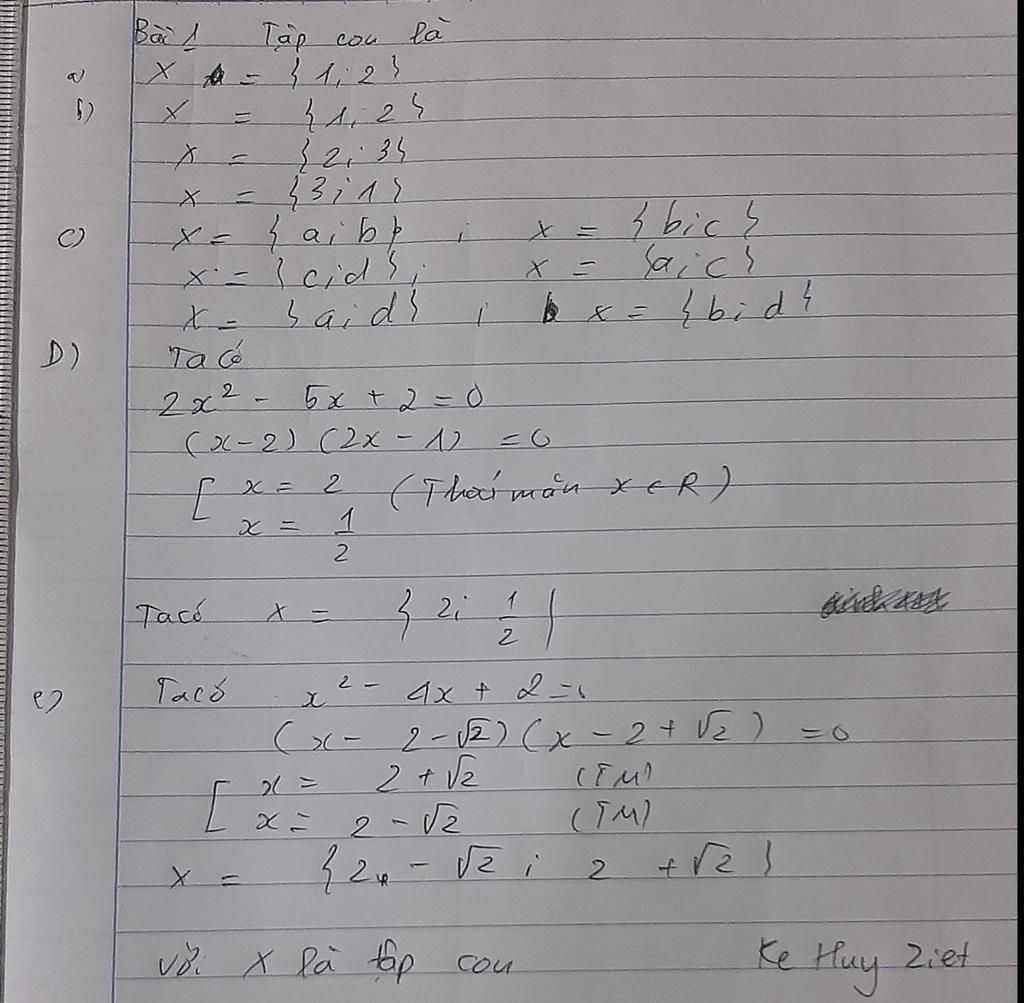 Bài 1 Tập con là
a) X = {1; 2}
b) X = {1; 2}
X = {2; 3}
X = {3; 1}
c) X = {a; b} ; X = {b; c}
X = {c; d} ; X = {a; c}
X = {a; d} ; X = {b; d}
D) Ta có
2x² - 5x + 2 = 0
(x - 2) (2x - 1) = 0
[ x = 2 (Thoả mãn x ∈ R)
x = 1/2
Ta có X = {2; 1/2}
e) Ta có x² - 4x + 2 = 0
(x - 2 - √2) (x - 2 + √2) = 0
[ x = 2 + √2 (TM)
x = 2 - √2 (TM)
X = {2 - √2 ; 2 + √2}
Với X là tập con Ke Huy Ziet